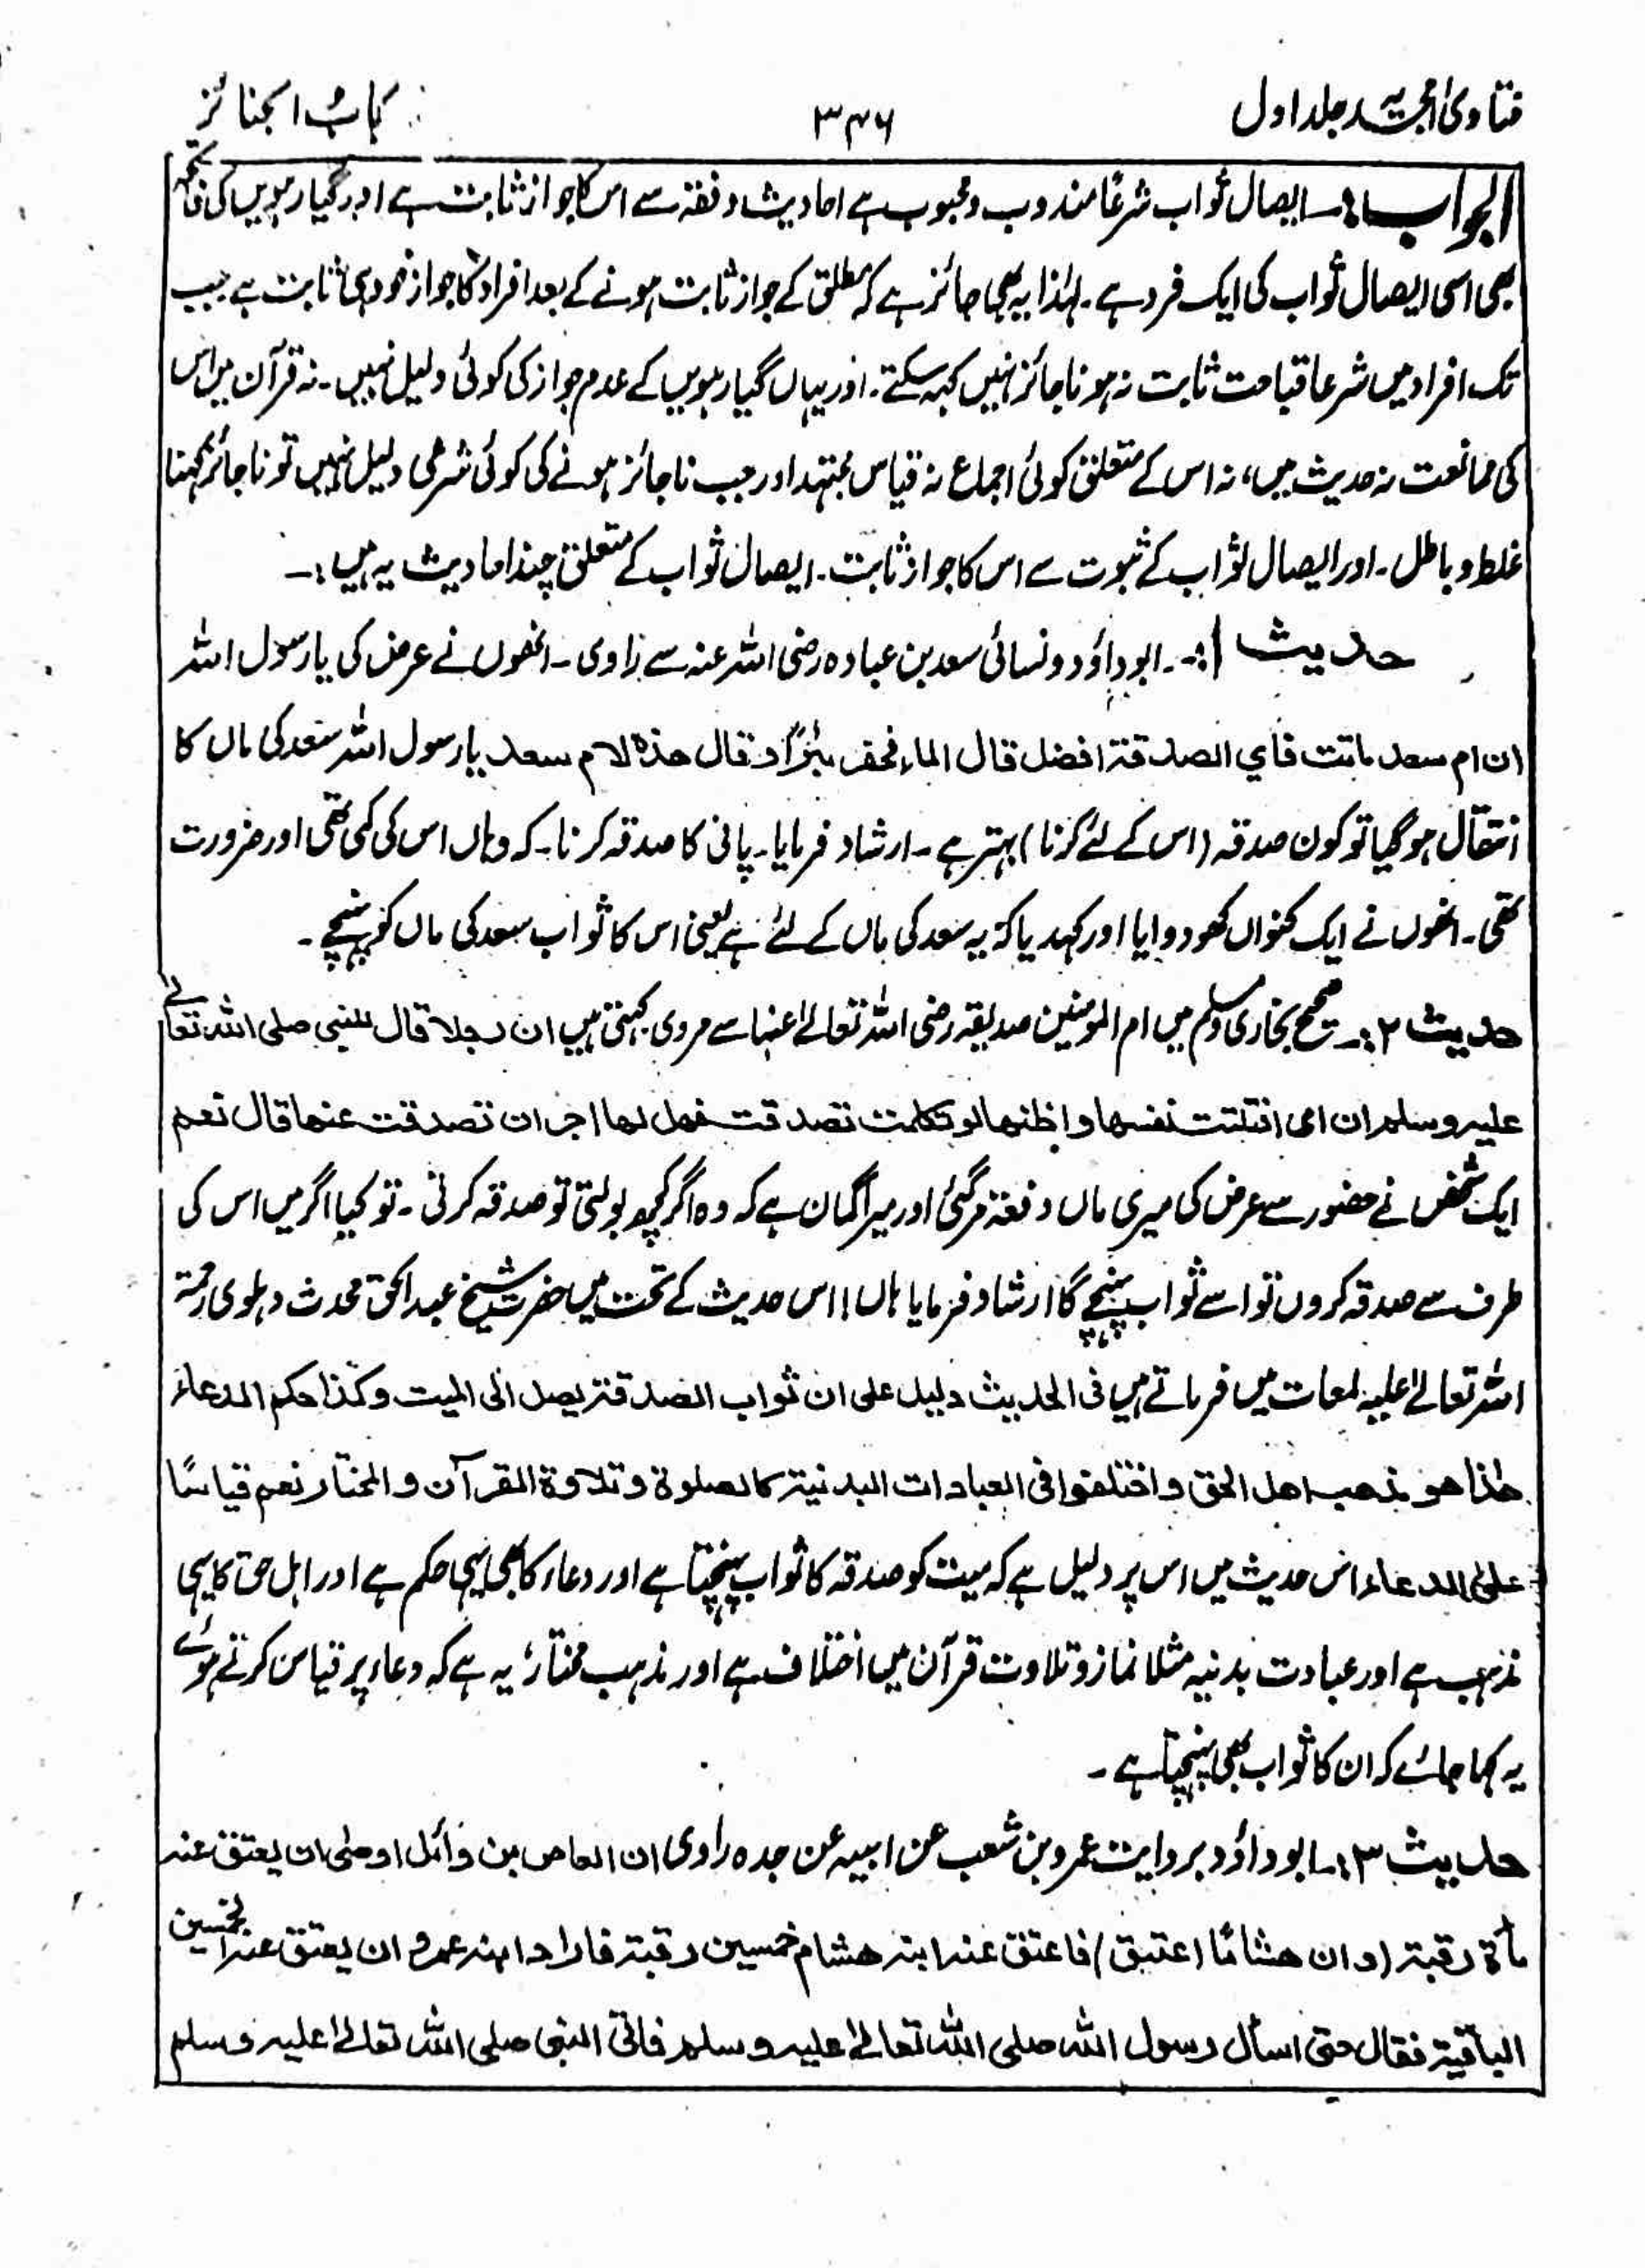 فتاویٰ امجدیہ جلد اول
۳۴۶
کتاب الجنائز
الجواب:۔ ایصال ثواب شرعًا مندوب و محبوب ہے احادیث و فقہ سے اس کا جواز ثابت ہے اور گیارہویں کی فاتحہ
بھی اسی ایصال ثواب کی ایک فرد ہے۔ لہٰذا یہ بھی جائز ہے کہ مطلق کے جواز ثابت ہونے کے بعد افراد کا جواز خود ہی ثابت ہے جب
تک افراد میں شرعا قباحت ثابت نہ ہو ناجائز نہیں کہہ سکتے۔ اور یہاں گیارہویں کے عدم جواز کی کوئی دلیل نہیں۔ نہ قرآن میں اس
کی ممانعت نہ حدیث میں، نہ اس کے متعلق کوئی اجماع نہ قیاس مجتہد اور جب ناجائز ہونے کی کوئی شرعی دلیل نہیں تو ناجائز کہنا
غلط و باطل۔ اور ایصال ثواب کے ثبوت سے اس کا جواز ثابت۔ ایصال ثواب کے متعلق چند احادیث یہ ہیں:۔
حدیث ۱:۔ ابوداؤد و نسائی سعد بن عبادہ رضی اللہ عنہ سے راوی۔ انھوں نے عرض کی یا رسول اللہ
ان ام سعد ماتت فاي الصدقة افضل قال الماء فحفر بئرًا وقال هذه لام سعد یا رسول اللہ سعد کی ماں کا
انتقال ہو گیا تو کون صدقہ (اس کے لئے کرنا) بہتر ہے۔ ارشاد فرمایا۔ پانی کا صدقہ کرنا۔ کہ وہاں اس کی کمی تھی اور ضرورت
تھی۔ انھوں نے ایک کنواں کھودوایا اور کہدیا کہ یہ سعد کی ماں کے لئے ہے یعنی اس کا ثواب سعد کی ماں کو پہنچے۔
حدیث ۲:۔ صحیح بخاری و مسلم میں ام المومنین صدیقہ رضی اللہ تعالےٰ عنہا سے مروی کہتی ہیں ان رجلا قال للنبي صلى الله تعالےٰ
عليه وسلم ان امی افتلتت نفسها واظنها لو تكلمت تصدقت فهل لها اجر ان تصدقت عنها قال نعم
ایک شخص نے حضور سے عرض کی میری ماں دفعۃً مر گئی اور میرا گمان ہے کہ وہ اگر کچھ بولتی تو صدقہ کرتی۔ تو کیا اگر میں اس کی
طرف سے صدقہ کروں تو اسے ثواب پہنچے گا ارشاد فرمایا ہاں! اس حدیث کے تحت میں حضرت شیخ عبدالحق محدث دہلوی رحمۃ
اللہ تعالےٰ علیہ لمعات میں فرماتے ہیں فی الحدیث دلیل على ان ثواب الصدقة يصل الى الميت وكذا حكم الدعاء
هٰذا هو مذهب اهل الحق واختلفوا فی العبادات البدنية كالصلوٰة وتلاوة القرآن والمختار نعم قياسًا
علیٰ الدعاء اس حدیث میں اس پر دلیل ہے کہ میت کو صدقہ کا ثواب پہنچتا ہے اور دعاء کا بھی یہی حکم ہے اور اہل حق کا یہی
مذہب ہے اور عبادت بدنیہ مثلا نماز و تلاوت قرآن میں اختلاف ہے اور مذہب مختار یہ ہے کہ دعاء پر قیاس کرتے ہوئے
یہ کہا جائے کہ ان کا ثواب بھی پہنچتا ہے۔
حدیث ۳:۔ ابوداؤد بروایت عمرو بن شعیب عن ابیہ عن جدہ راوی ان العاص بن وائل اوصٰی ان يعتق عنه
مأة رقبة (وان هشامًا اعتیق) فاعتق عنه ابنه هشام خمسين رقبة فاراد ابنه عمرو ان يعتق عنه الخمسین
الباقية فقال حتى اسأل رسول الله صلى الله تعالےٰ عليه وسلم فاتى النبی صلى الله تعالےٰ عليه وسلم